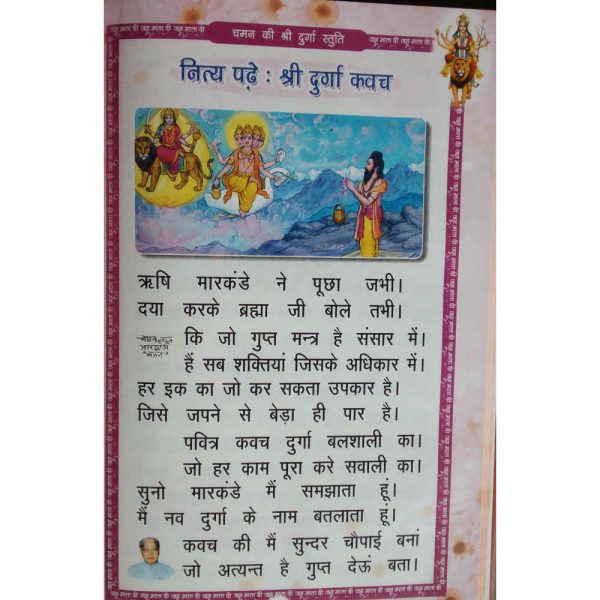 चमन की श्री दुर्गा स्तुति
जय माता दी जय माता दी जय माता दी
नित्य पढ़े : श्री दुर्गा कवच
ऋषि मारकंडे ने पूछा जभी।
दया करके ब्रह्मा जी बोले तभी।
कि जो गुप्त मन्त्र है संसार में।
हैं सब शक्तियां जिसके अधिकार में।
हर इक का जो कर सकता उपकार है।
जिसे जपने से बेड़ा ही पार है।
पवित्र कवच दुर्गा बलशाली का।
जो हर काम पूरा करे सवाली का।
सुनो मारकंडे मैं समझाता हूं।
मैं नव दुर्गा के नाम बतलाता हूं।
कवच की मैं सुन्दर चौपाई बनां
जो अत्यन्त है गुप्त देऊं बता।